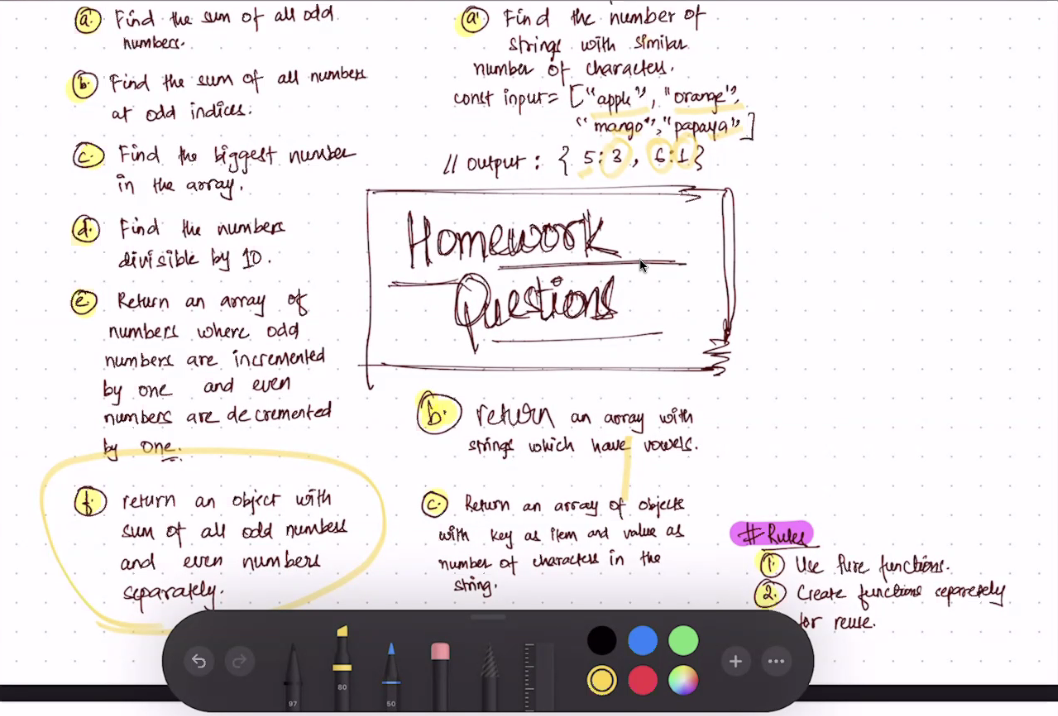 a. Find the sum of all odd
numbers.
b. Find the sum of all numbers
at odd indices.
c. Find the biggest number
in the array.
d. Find the numbers
divisible by 10.
e. Return an array of
numbers where odd
numbers are incremented
by one and even
numbers are decremented
by one.
f. return an object with
sum of all odd numbers
and even numbers
separately.
a. Find the number of
strings with similar
number of characters.
const input = ["apple", "orange",
"mango", "papaya"]
// output : { 5:3, 6:1}
Homework
Questions
b. return an array with
strings which have vowels.
c. Return an array of objects
with key as item and value as
number of characters in the
string.
# Rules
1. Use Pure functions.
2. Create functions separately
for reuse.
97
80
50